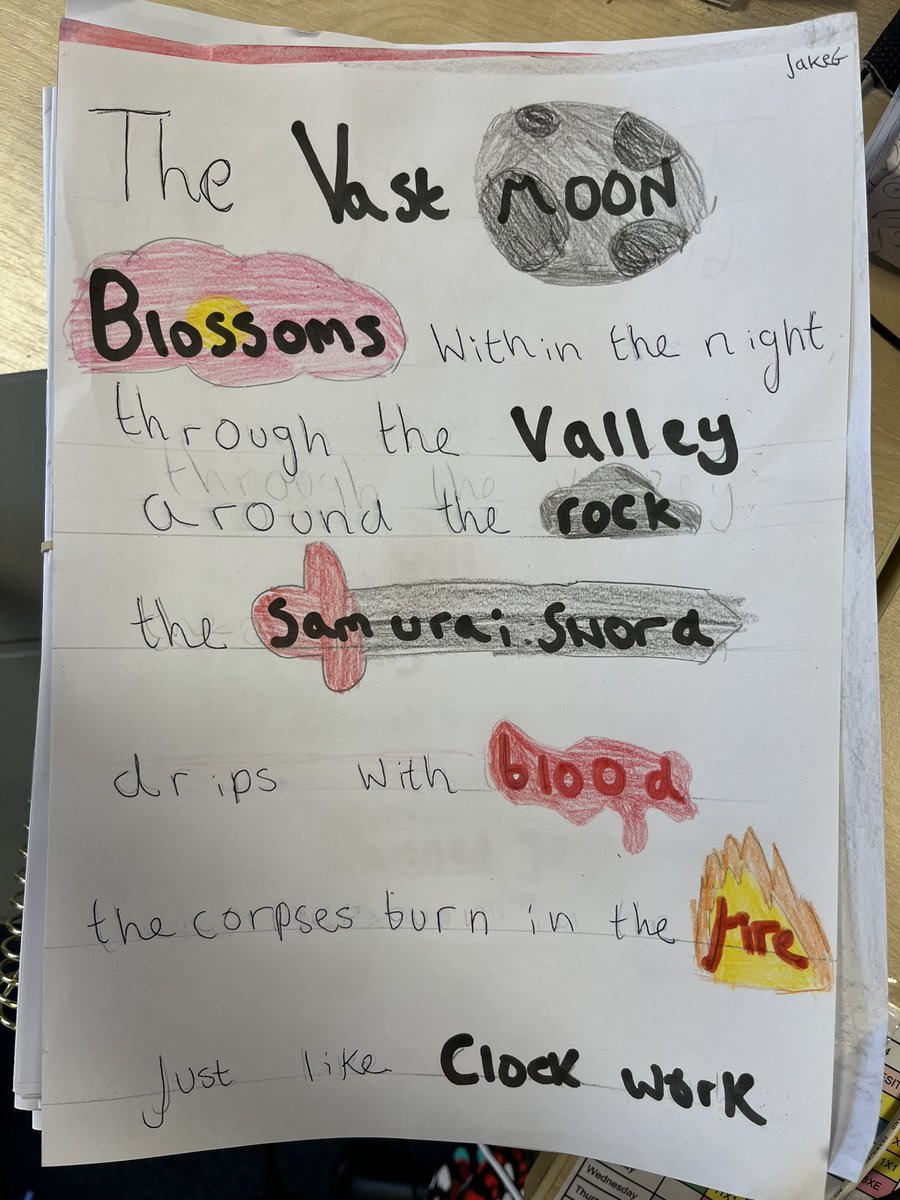 JakeG
The Vast MOON
Blossoms Within the night
through the Valley
around the rock
the Samurai Sword
drips with blood
the corpses burn in the fire
Just like Clock work
Wednesday